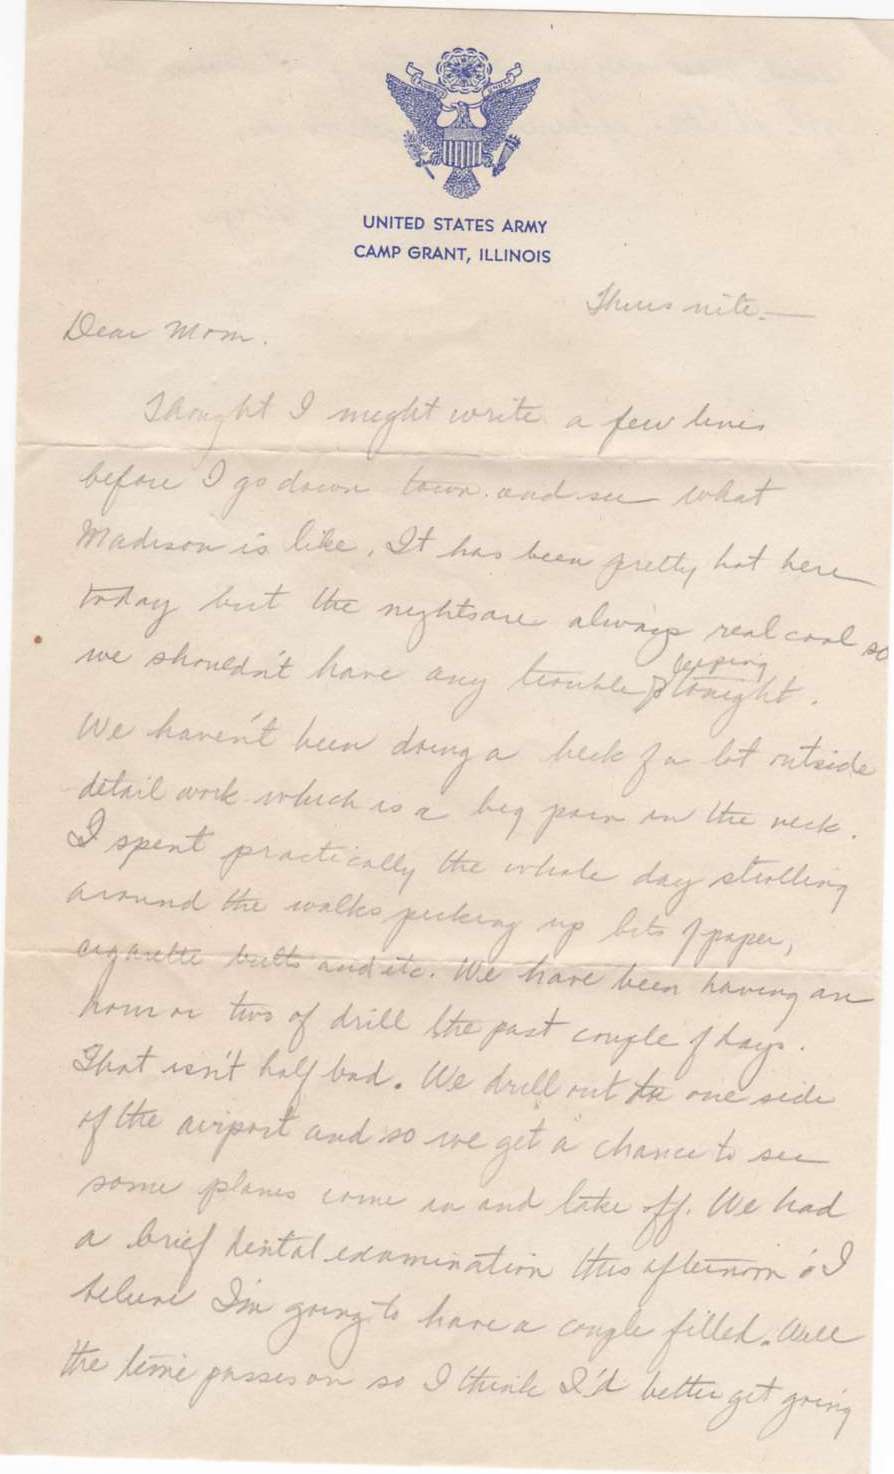 UNITED STATES ARMY
CAMP GRANT, ILLINOIS
Thurs nite.—
Dear Mom.
Thought I might write a few lines
before I go down town and see what
Madison is like. It has been pretty hot here
today but the nights are always real cool so
we shouldn't have any trouble sleeping tonight.
We haven't been doing a heck of a lot outside
detail work which is a big pain in the neck.
I spent practically the whole day strolling
around the walks picking up bits of paper,
cigarette butts and etc. We have been having an
hour or two of drill the past couple of days.
That isn't half bad. We drill out to one side
of the airport and so we get a chance to see
some planes come in and take off. We had
a brief dental examination this afternoon & I
believe I'm going to have a couple filled. Well
the time passes on so I think I'd better get going